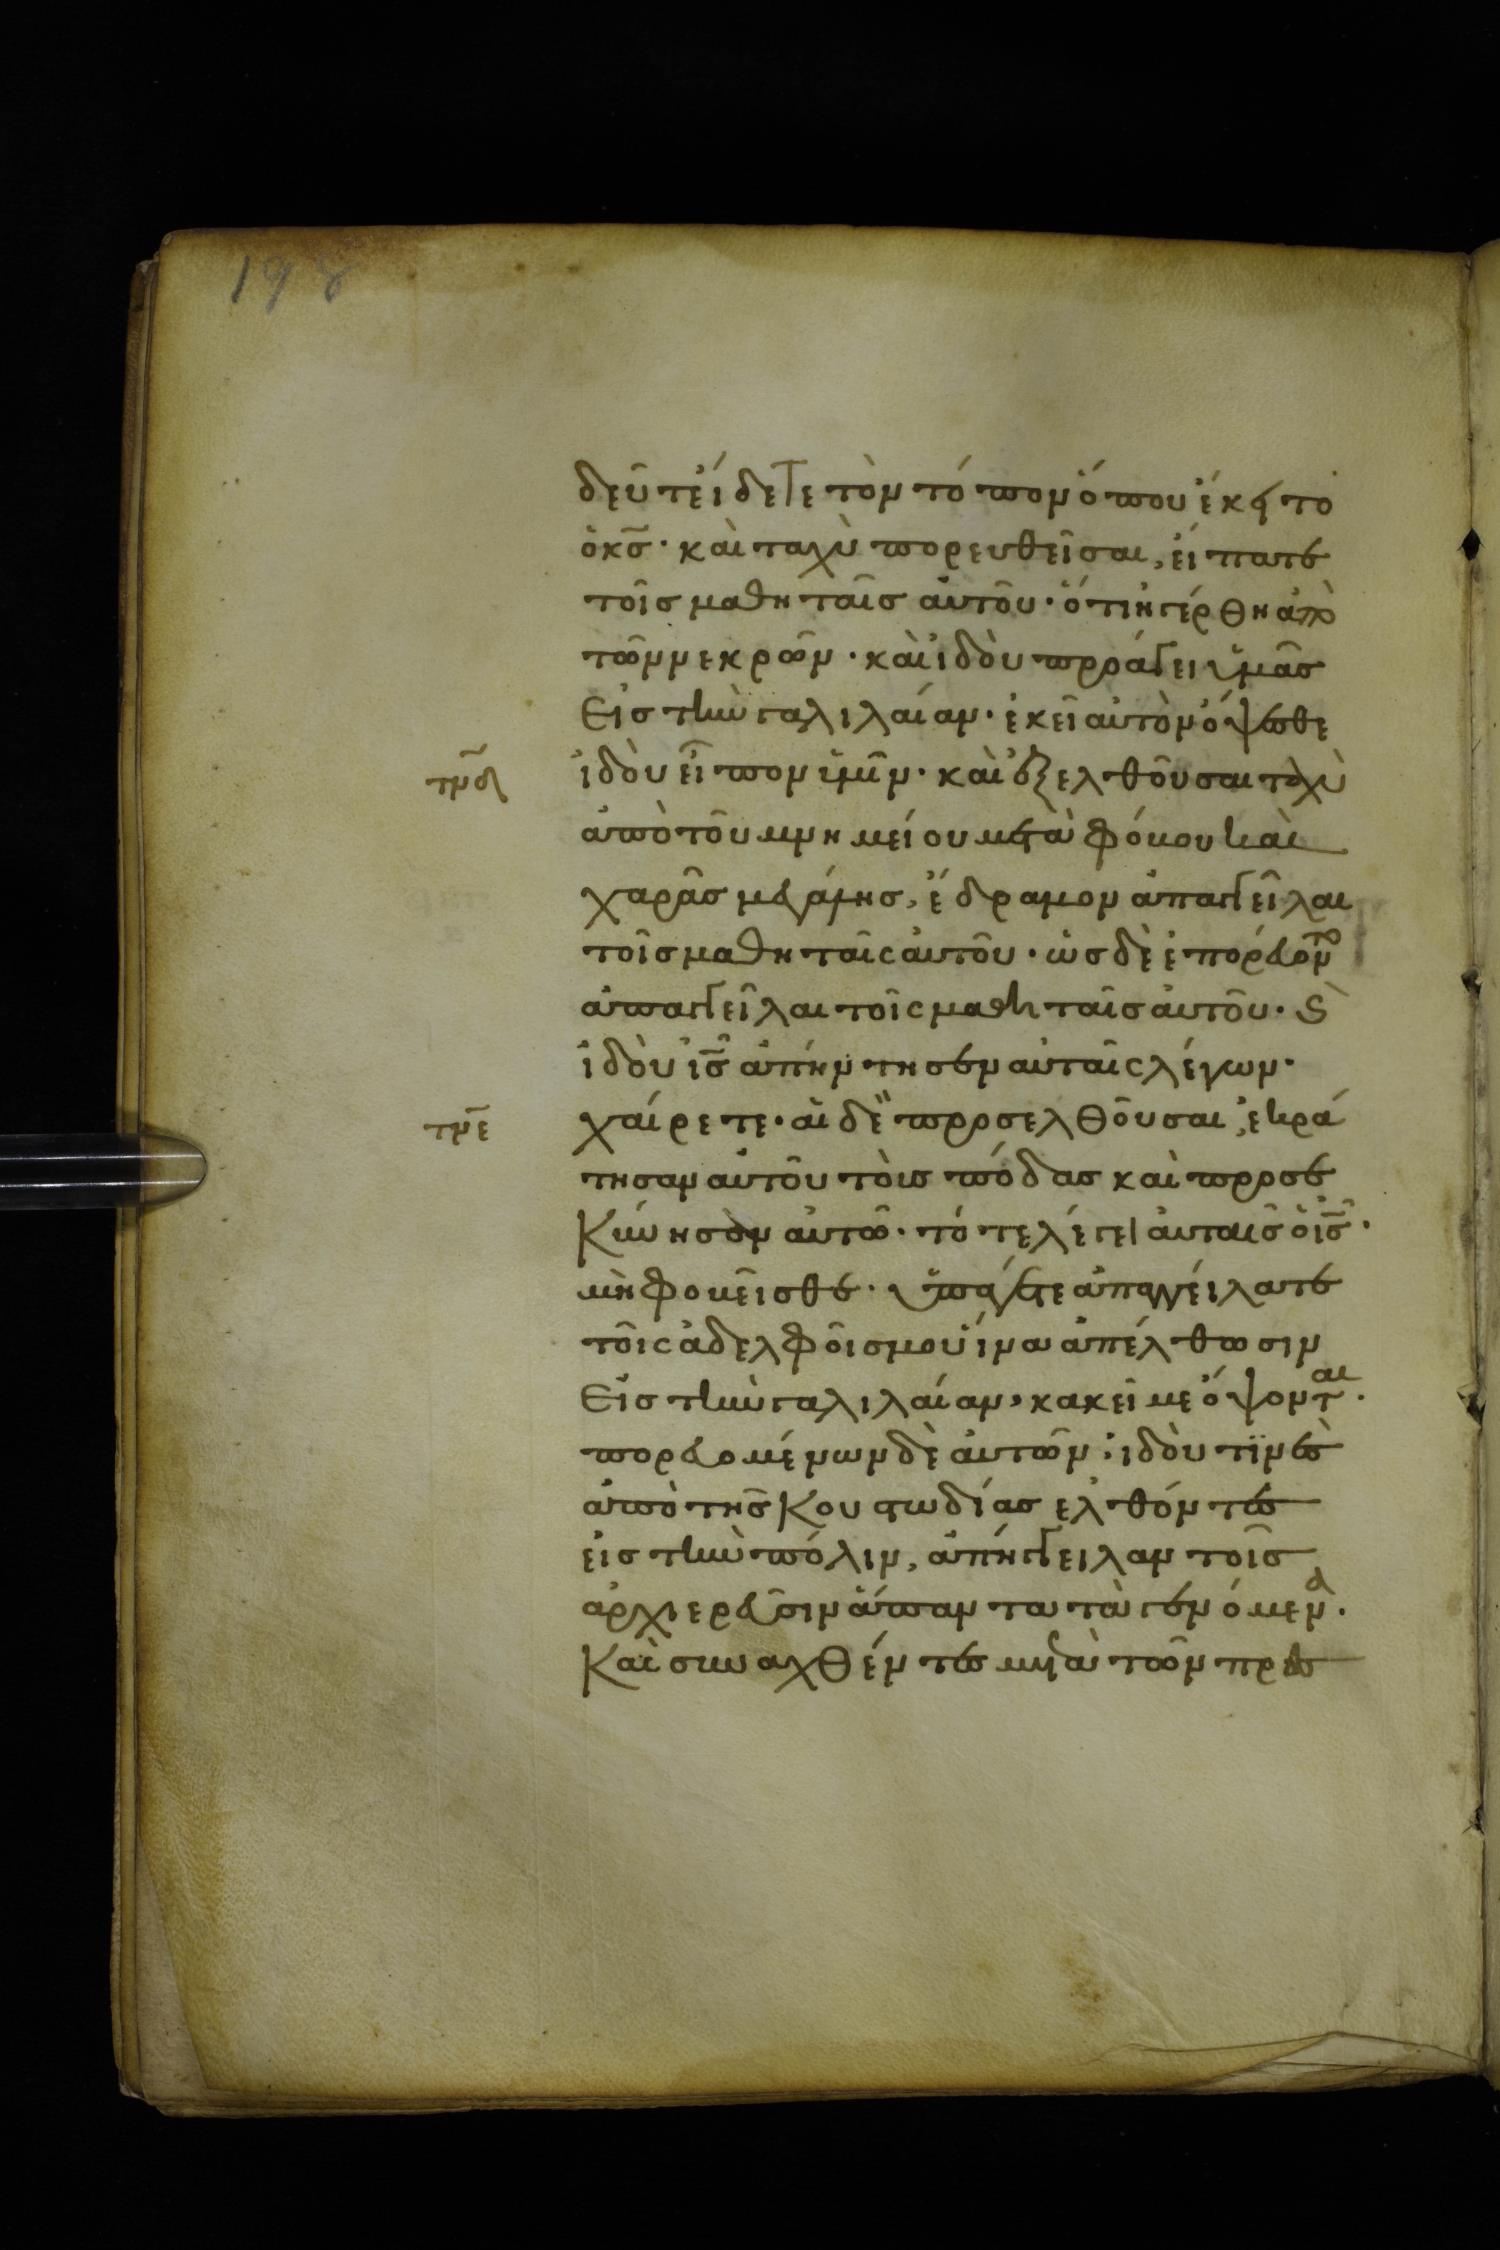 198
δεῦτε ἴδετε τὸν τόπον ὅπου ἔκειτο
ὁ κς̅· καὶ ταχὺ πορευθεῖσαι, εἴπατε
τοῖς μαθηταῖς αὐτοῦ· ὅτι ἠγέρθη ἀπὸ
τῶν νεκρῶν· καὶ ἰδοὺ προάγει ὑμᾶς
εἰς τὴν γαλιλαίαν· ἐκεῖ αὐτὸν ὄψεσθε
τμδ ἰδοὺ εἶπον ὑμῖν· καὶ ἐξελθοῦσαι ταχὺ
ἀπὸ τοῦ μνημείου μετὰ φόβου καὶ
χαρᾶς μεγάλης, ἔδραμον ἀπαγγεῖλαι
τοῖς μαθηταῖς αὐτοῦ· ὡς δὲ ἐπορεύοντο
ἀπαγγεῖλαι τοῖς μαθηταῖς αὐτοῦ· ϗ
ἰδοὺ ις̅ ἀπήντησεν αὐταῖς λέγων·
τμε χαίρετε· αἱ δὲ προσελθοῦσαι, ἐκρά
τησαν αὐτοῦ τοὺς πόδας καὶ προσε
κύνησαν αὐτῶ· τότε λέγει αὐταῖς ὁ ις̅·
μὴ φοβεῖσθε· ὑπάγετε ἀπαγγείλατε
τοῖς ἀδελφοῖς μου ἵνα ἀπέλθωσιν
εἰς τὴν γαλιλαίαν, κακεῖ με ὄψονται·
πορευομένων δὲ αὐτῶν· ἰδού τινὲς
ἀπὸ τῆς κουστωδίας ἐλθόντες
εἰς τὴν πόλιν, ἀπήγγειλαν τοῖς
ἀρχιερεῦσιν ἅπαντα τὰ γενόμενα·
καὶ συναχθέντες μετὰ τῶν πρεσ